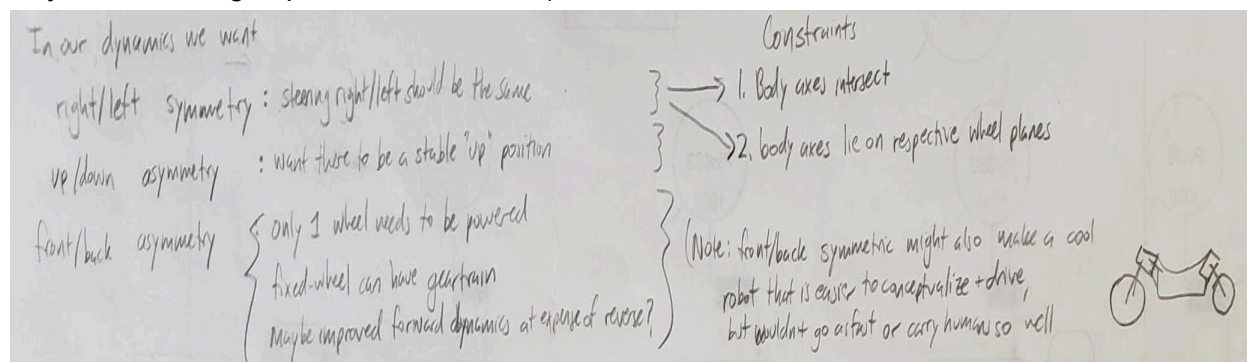 In our dynamics we want
right/left symmetry : steering right/left should be the same
up/down asymmetry : want there to be a stable "up" position
front/back asymmetry
only 1 wheel needs to be powered
fixed-wheel can have geartrain
Maybe improved forward dynamics at expense of reverse?
Constraints
1. Body axes intersect
2. body axes lie on respective wheel planes
(Note: front/back symmetric might also make a cool
robot that is easier to conceptualize + drive,
but wouldnt go as fast or carry humans so well